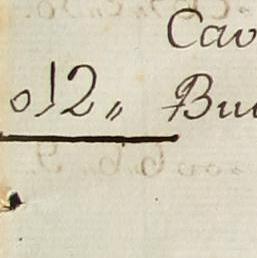 Cav
012„ Bu